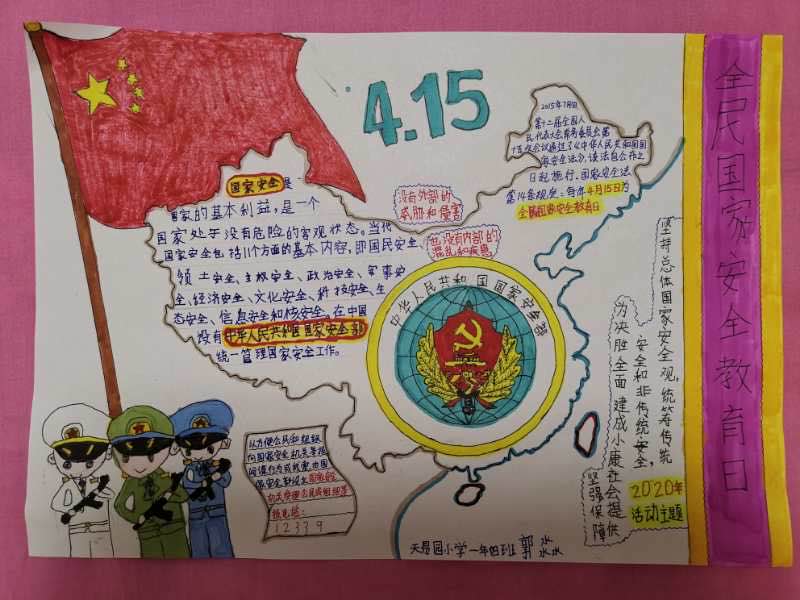 4.15
国家安全是一
国家的基本利益,是一个
国家处于没有危险的客观状态。当代
国家安全包括11个方面的基本内容,即国民安全、
领土安全、主权安全、政治安全、军事安
全、经济安全、文化安全、科技安全、生
态安全、信息安全和核安全。在中国
没有中华人民共和国国家安全部
统一管理国家安全工作。
没有外部的
威胁和侵害
也没有内部的
混乱和疾患
2015年7月1日
第十二届全国人
民代表大会常务委员会第
十五次会议通过了《中华人民共和国国
家安全法》,该法自公布之
日起施行。国家安全法
第14条规定:每年4月15日为
全民国家安全教育日
中华人民共和国国家安全部
以方便公民和组织
向国家安全机关举报
12339
坚持总体国家安全观,统筹传统
安全和非传统安全,
为决胜全面建成小康社会提供
坚强保障
2020年
活动主题
全民国家安全教育日
天昂园小学一年四班 郭